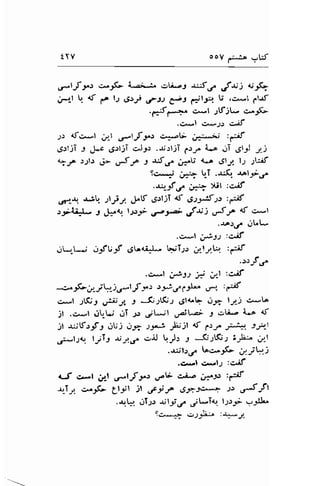 کتاب هشتم ۵۵۷ ۴۲۷
چگونه زندگی می‌کنند وصفات مشخصهٔ حکومت دموکراسی
کدام است، تا بتوانیم وضع روحی فردی را هم که با این
حکومت سازگار است مجسم کنیم.
گفت درست است.
گفتم: نخستین خاصیت دموکراسی این است که در
زیر لوای آن همهٔ مردم آزادند. دولت آزادی عمل و آزادی
گفتار را برای همه تأمین می‌کند و هرکس حق دارد هرچه
می‌خواهد بکند. آیا چنین نیست؟
گفت: اقلا چنین می‌گویند.
گفتم: درکشوری که آزادی کامل برقرار باشد بدیهی
است که هرکس زندگی خصوصی خودرا به‌میل و سلیقهٔ خود
سامان می‌دهد.
گفت: روشن است.
گفتم: بنابراین درآنجا سلیقه‌های گوناگون نمایان
می‌گردد.
گفت: این نیز روشن است.
گفتم: پس معلوم می‌شود دموکراسی زیباترین حکومت
هاست زیرا چون جامه‌ای رنگارنگ و پرنقش و نگار است
که همهٔ صفات و خصائص انسانی در آن نمایان است. از
اینرو بیشتر مردم که ازنظر شعور چون زنان وکودکانند از
این منظرهٔ رنگارنگ و دلربا لذت می‌برند وآنرا به‌راستی
زیباترین حکومت‌ها می‌دانند.
گفت: راست است.
گفتم: دومین صفت خاص دموکراسی این است که
اگرکسی در جست‌وجوی هرنوعی از انواع حکومت برآید
مطلوب خودرا به‌آسانی می‌تواند درآن بیابد.
پرسید: منظورت چیست؟